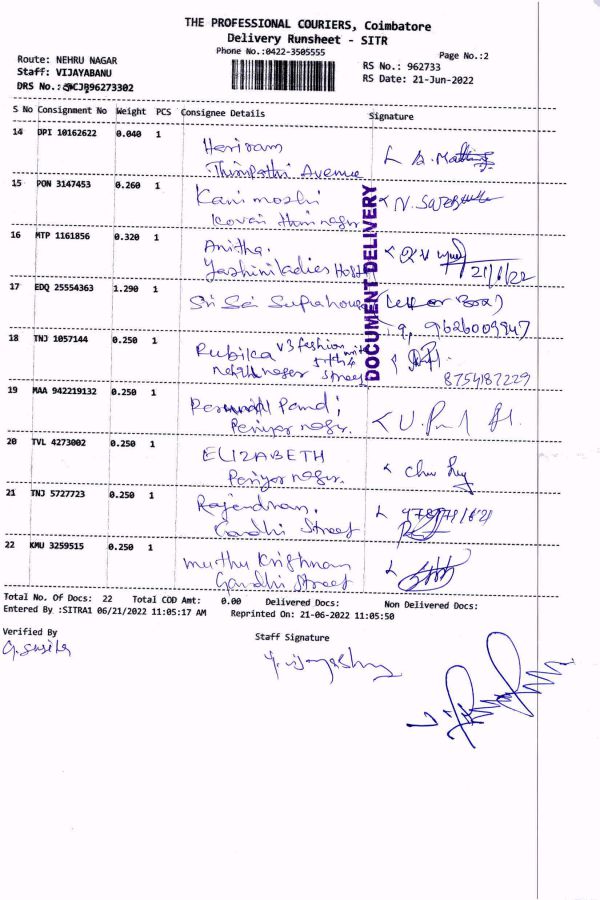 THE PROFESSIONAL COURIERS, Coimbatore
Delivery Runsheet - SITR
Phone No.:0422-3505555
Page No.:2
Route: NEHRU NAGAR
RS No.: 962733
Staff: VIJAYABANU
RS Date: 21-Jun-2022
DRS No.:
S No Consignment No Weight PCS Consignee Details Signature
14 DPI 10162622 0.040 1 Hariram
Avenue
15 PON 3147453 0.260 1 Kanimozhi
Kovai
16 MTP 1161856 0.320 1 Anitha.
Yashini ladies Hostel
21/6/22
17 EDQ 25554363 1.290 1 Sri Sai (Letter Box)
9626009847
18 TNJ 1057144 0.250 1 Rubika V3 fashion
Nehru nagar street
8754187229
19 MAA 942219132 0.250 1
Periyar nagar.
20 TVL 4273002 0.250 1 ELIZABETH
Periyar nagar.
21 TNJ 5727723 0.250 1 Rajendran.
Gandhi Street
22 KMU 3259515 0.250 1 Muthu Krishnan
Gandhi Street
DOCUMENT DELIVERY
Total No. Of Docs: 22 Total COD Amt: 0.00 Delivered Docs: Non Delivered Docs:
Entered By :SITRA1 06/21/2022 11:05:17 AM Reprinted On: 21-06-2022 11:05:50
Verified By
Staff Signature